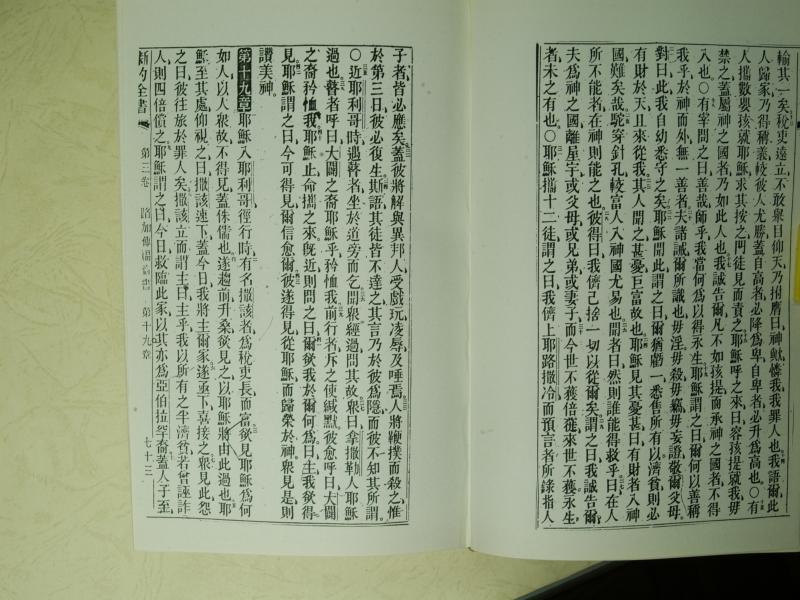 輸其一矣稅吏遠立不敢舉目仰天乃拊膺曰神歟憐我我罪人也我語爾此
人歸家乃得稱義較彼人尤勝蓋自高者必降爲卑自卑者必升爲高也○有
人攜數嬰孩就耶穌求其按之門徒見而責之耶穌呼之來曰容孩提就我毋
禁之蓋屬神之國者乃如此人也我誠告爾凡不如孩提而承神之國者不得
入也○有宰問之曰善哉師乎我當何爲以得永生耶穌謂之曰爾何以善稱
我乎於神而外無一善者夫諸誡爾所識也毋淫毋殺毋竊毋妄證敬爾父母
對曰此我自幼悉守之矣耶穌聞此謂之曰爾猶虧一悉售所有以濟貧則必
有財於天且來從我其人聞之甚憂巨富故也耶穌見其憂甚曰有財者入神
國難矣哉駝穿針孔較富人入神國尤易也聞者曰然則誰能得救乎曰在人
所不能者在神則能之也彼得曰我儕已捨一切以從爾矣謂之曰我誠告爾
夫爲神之國離屋宇或父母或兄弟或妻子而今世不獲倍蓰來世不獲永生
者未之有也○耶穌攜十二徒謂之曰我儕上耶路撒冷而預言者所錄指人
子者皆必應矣蓋彼將解與異邦人受戲玩凌辱及唾焉人將鞭撲而殺之惟
於第三日彼必復生斯語其徒皆不達之其言乃於彼爲隱而彼不知其所謂
○近耶利哥時遇瞽者坐於道旁而乞聞衆經過問其故衆曰拿撒勒人耶穌
過也瞽者呼曰大闢之裔耶穌乎矜恤我前行者斥之使緘默彼愈呼曰大闢
之裔矜恤我耶穌止命攜之來旣近則問之曰爾欲我於爾何爲曰主我欲得
見耶穌謂之曰今可得見爾信愈爾彼遂得見從耶穌而歸榮於神衆見是則
讚美神
第十九章耶穌入耶利哥徑行時有名撒該者爲稅吏長而富欲見耶穌爲何
如人以人衆故不得見蓋侏儒也遂趨前升桑欲見之以耶穌將由此過也耶
穌至其處仰視之曰撒該速下蓋今日我將主爾家遂亟下喜接之衆見此怨
之曰彼往旅於罪人矣撒該立而謂主曰主乎我以所有之半濟貧若曾誣詐
人則四倍償之耶穌謂之曰今日救臨此家以其亦爲亞伯拉罕裔蓋人子至
新約全書 第三卷 路加傳福音書 第十九章 七十三